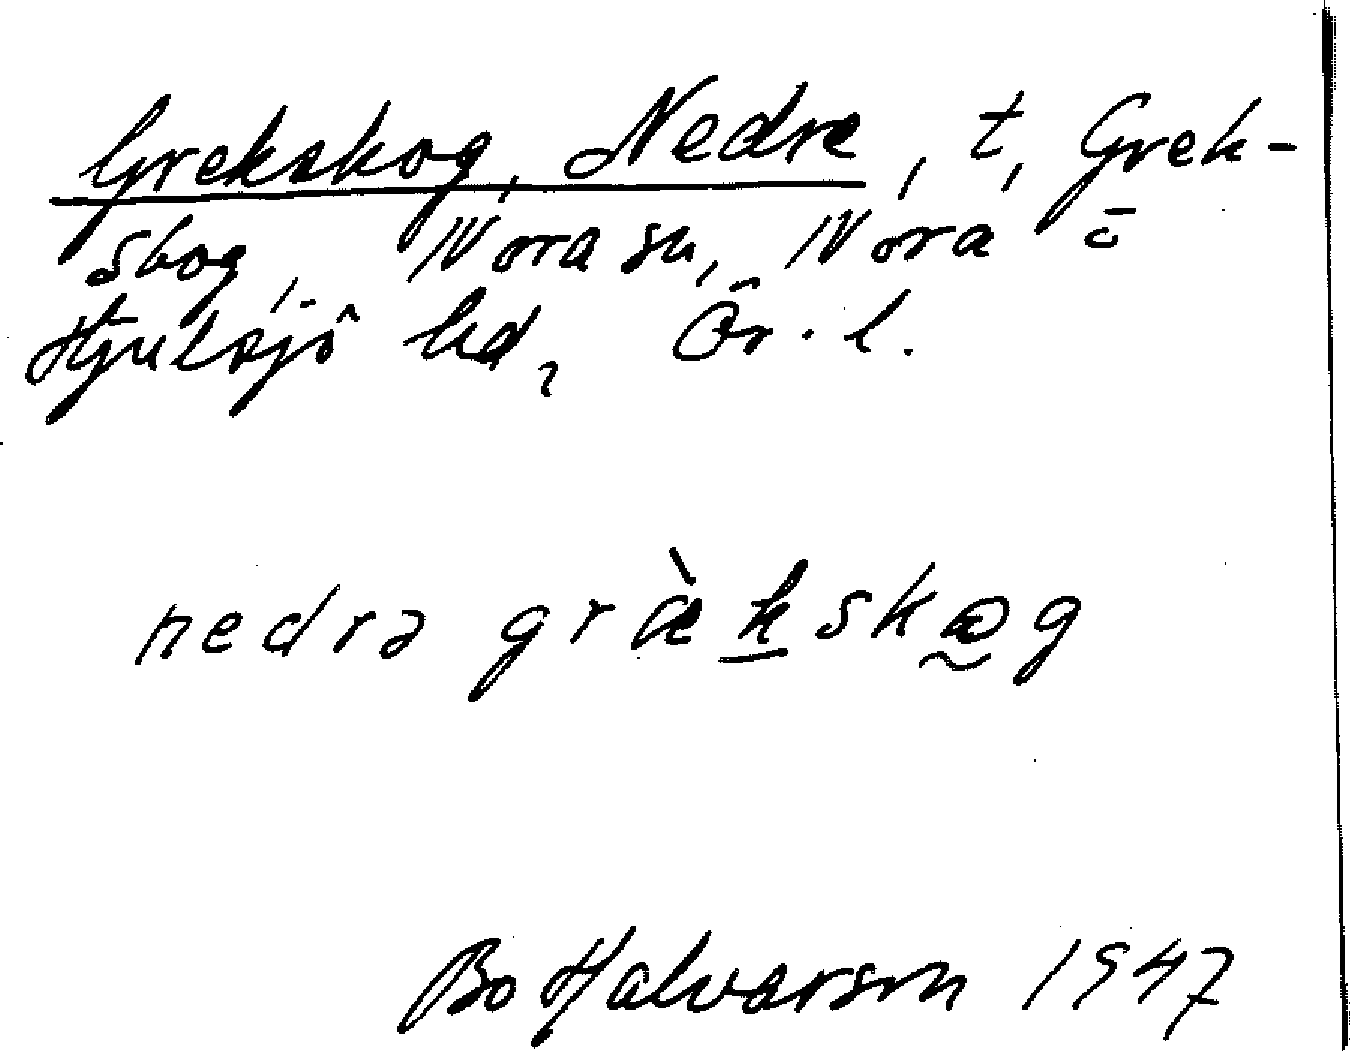 Grekskog, Nedre, t, Grek-
skog, Nora sn, Nora o
Hjulsjö hd, Ör. l.
nedrə græ̀kskæg
Bo Halvarson 1947